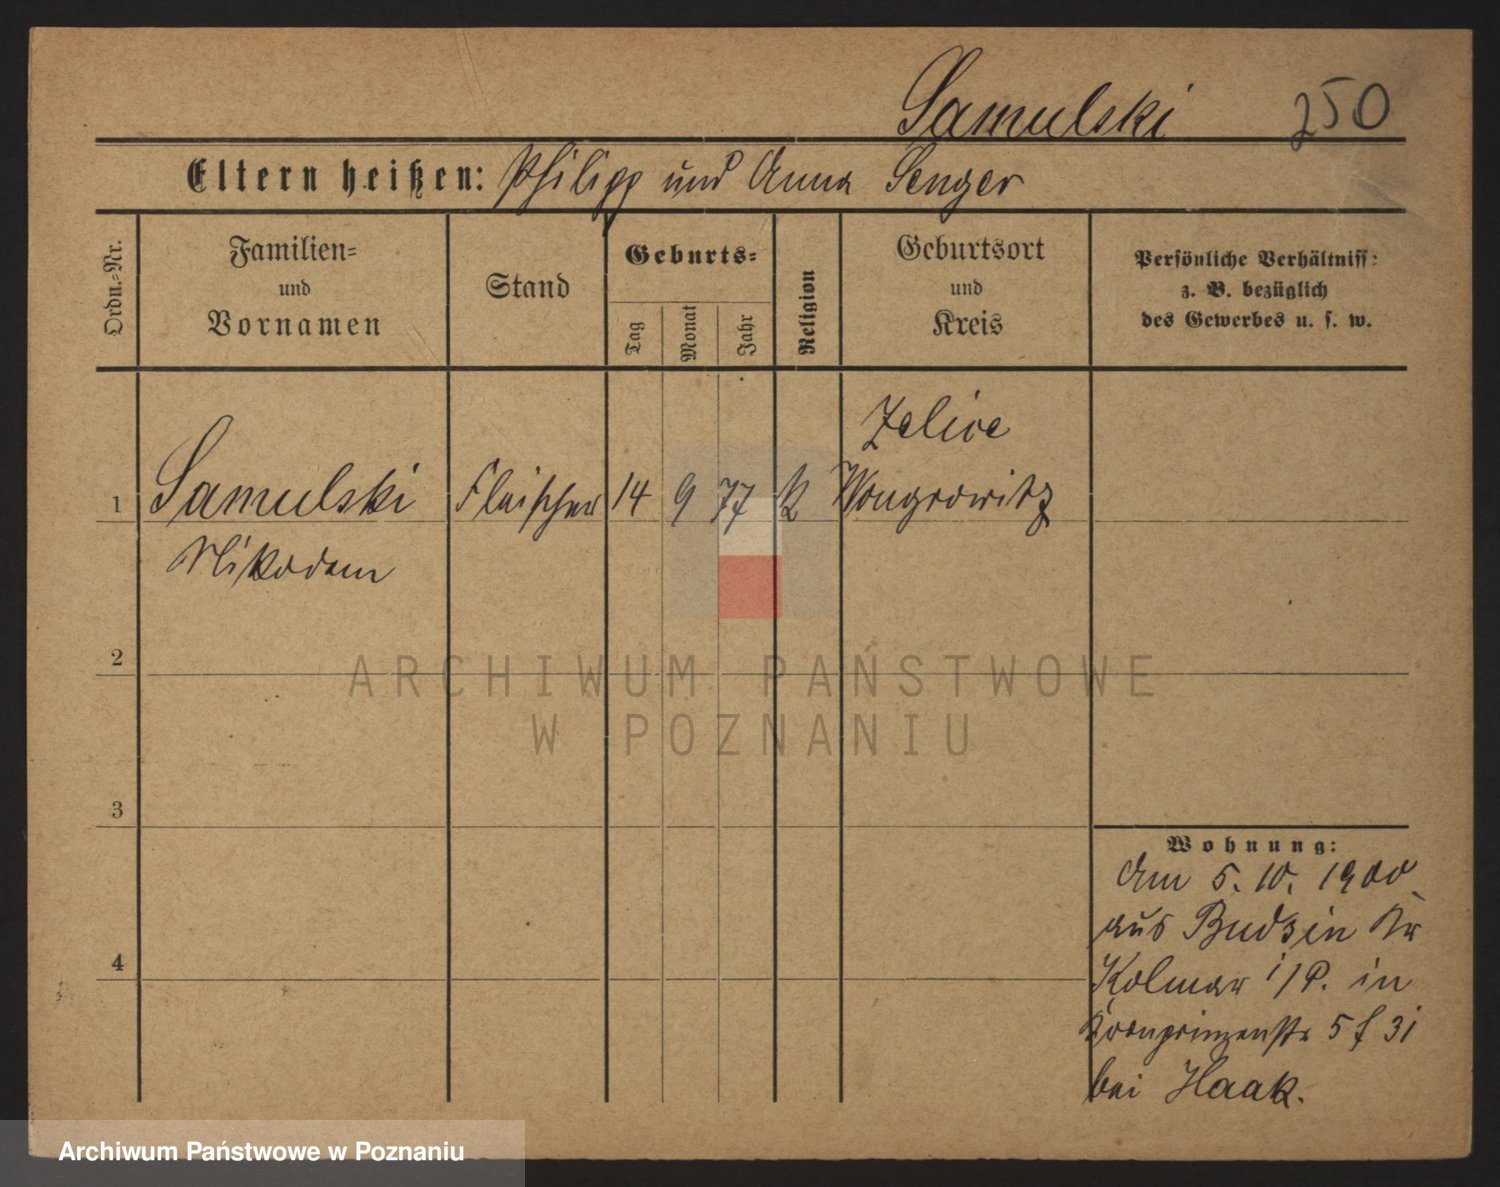 Samulski 250
Eltern heißen: Philipp und Anna Senger
Ordn.-Nr.
Familien-
und
Vornamen
Stand
Geburts-
Tag
Monat
Jahr
Religion
Geburtsort
und
Kreis
Persönliche Verhältniss:
z. B. bezüglich
des Gewerbes u. s. w.
Zelice
1 Samulski Fleischer 14 9 77 K Wongrowitz
Nikodem
2
3
4
Wohnung:
Am 5. 10. 1900
aus Budzin Kr
Kolmar i/P. in
Kronprinzenstr 5 f 3i
bei Haak.
ARCHIWUM PAŃSTWOWE
W POZNANIU
Archiwum Państwowe w Poznaniu